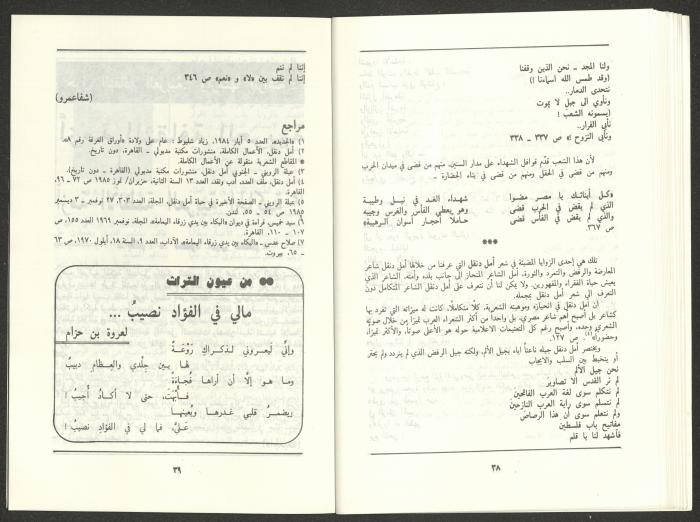 ولنا المجد ـ نحن الذين وقفنا
(وقد طمس الله اسماءنا!)
نتحدى الدمار..
ونأوي الى جبل لا يموت
(يسمونه الشعب!)
نأبى الفرار..
ونأبى النزوح!» ص ٣٣٧ ـ ٣٣٨
لأن هذا الشعب قدّم قوافل الشهداء على مدار السنين، منهم من قضى في ميدان الحرب
ومنهم من قضى في الحقل ومنهم من قضى في بناء الحضارة ـ
«كل أبنائك يا مصر مضوا شهداء الغد في نبل وطيبة
الذي لم يقض في الحرب قضى وهو يعطي الفأس والغرس وجيبه
والذي لم يقض في الفأس قضى حاملاً أحجار أسوان الرهيبة»
ص ٣٦٧.
***
تلك هي إحدى الزوايا المضيئة في شعر أمل دنقل التي عرفنا من خلالها أمل دنقل شاعر
المعارضة والرفض والتمرد والثورة، أمل الشاعر المنحاز الى جانب بلده وأمته، الشاعر الذي
يعيش حياة الفقراء والمقهورين. ولا يمكن لنا أن نتعرف على أمل دنقل الشاعر المتكامل دون
التعرف الى شعر أمل دنقل بمجمله.
أن أمل دنقل في انحيازه وموهبته الشعرية، كلاً متكاملاً، كانت له ميزاته التي تفرد بها
كشاعر بل أصبح أهم شاعر مصري، بل واحداً من أكثر الشعراء العرب تميزاً من خلال صوته
الشعري وحده، وأصبح رغم كل التعتيمات الاعلامية حوله هو الأعلى صوتاً، والأكثر تميزاً،
وحضوراً» ص ١٢٧.
ويختصر أمل دنقل جيله ناعتاً اياه بجيل الألم، ولكنه جيل الرفض الذي لم يتردد ولم يحتر
أو يتخبط بين السلب والايجاب
نحن جيل الألم
لم نر القدس الا تصاوير
لم نتكلم سوى لغة العرب الفاتحين
لم نتسلم سوى راية العرب النازحين
ولم نتعلم سوى أن هذا الرصاص
مفاتيح باب فلسطين
فاشهد لنا يا قلم
٣٨
إننا لم ننم
إننا لم نقف بين «لا» و «نعم» ص ٣٤٦
(شفاعمرو)
مراجع
١) «الجديد»، العدد ٥ أيار ١٩٨٤، زياد شليوط: عام على ولادة «أوراق الغرفة رقم ٨».
٢) أمل دنقل، الأعمال الكاملة، منشورات مكتبة مدبولي ـ القاهرة، دون تاريخ.
* المقاطع الشعرية منقولة عن الأعمال الكاملة.
٣) عبلة الرويني ـ الجنوبي أمل دنقل، منشورات مكتبة مدبولي (القاهرة ـ دون تاريخ).
٤) أمل دنقل، ملف العدد، أدب ونقد، العدد ١٣ السنة الثانية، حزيران/ تموز ١٩٨٥ ص ٧٢ ـ ٩٦،
القاهرة.
٥) عبلة الرويني ـ الصفحة الأخيرة في حياة أمل دنقل، المجلة، العدد ٣٠٣، ٢٧ نوفمبر ـ ٣ ديسمبر
١٩٨٥ ص ٥٤ ـ ٥٥، لندن.
٦) سيد خميس، قراءة في ديوان «البكاء بين يدي زرقاء اليمامة»، المجلة، نوفمبر ١٩٦٩ العدد ١٥٥، ص
١٠٧ ـ ١١٠، القاهرة.
٧) صلاح عدس ـ «البكاء بين يدي زرقاء اليمامة»، الآداب، العدد ٩، السنة ١٨، أيلول ١٩٧٠، ص ٦٣
ـ ٦٥، بيروت.
** من عيون التراث
مالي في الفؤاد نصيبُ ...
لعروة بن حزام
وإنّي لَيعروني لذكراكِ رَوْعَةٌ
لها بين جلدي والعظام دبيبُ
وما هو إلّا أن أراها فُجاءَةً
فأُبهَتَ، حتى لا أكادُ أُجيبُ!
ويضمرُ قلبي غدرَها ويُعينُها
عليَّ، فما لي في الفؤاد نصيبُ!
٣٩